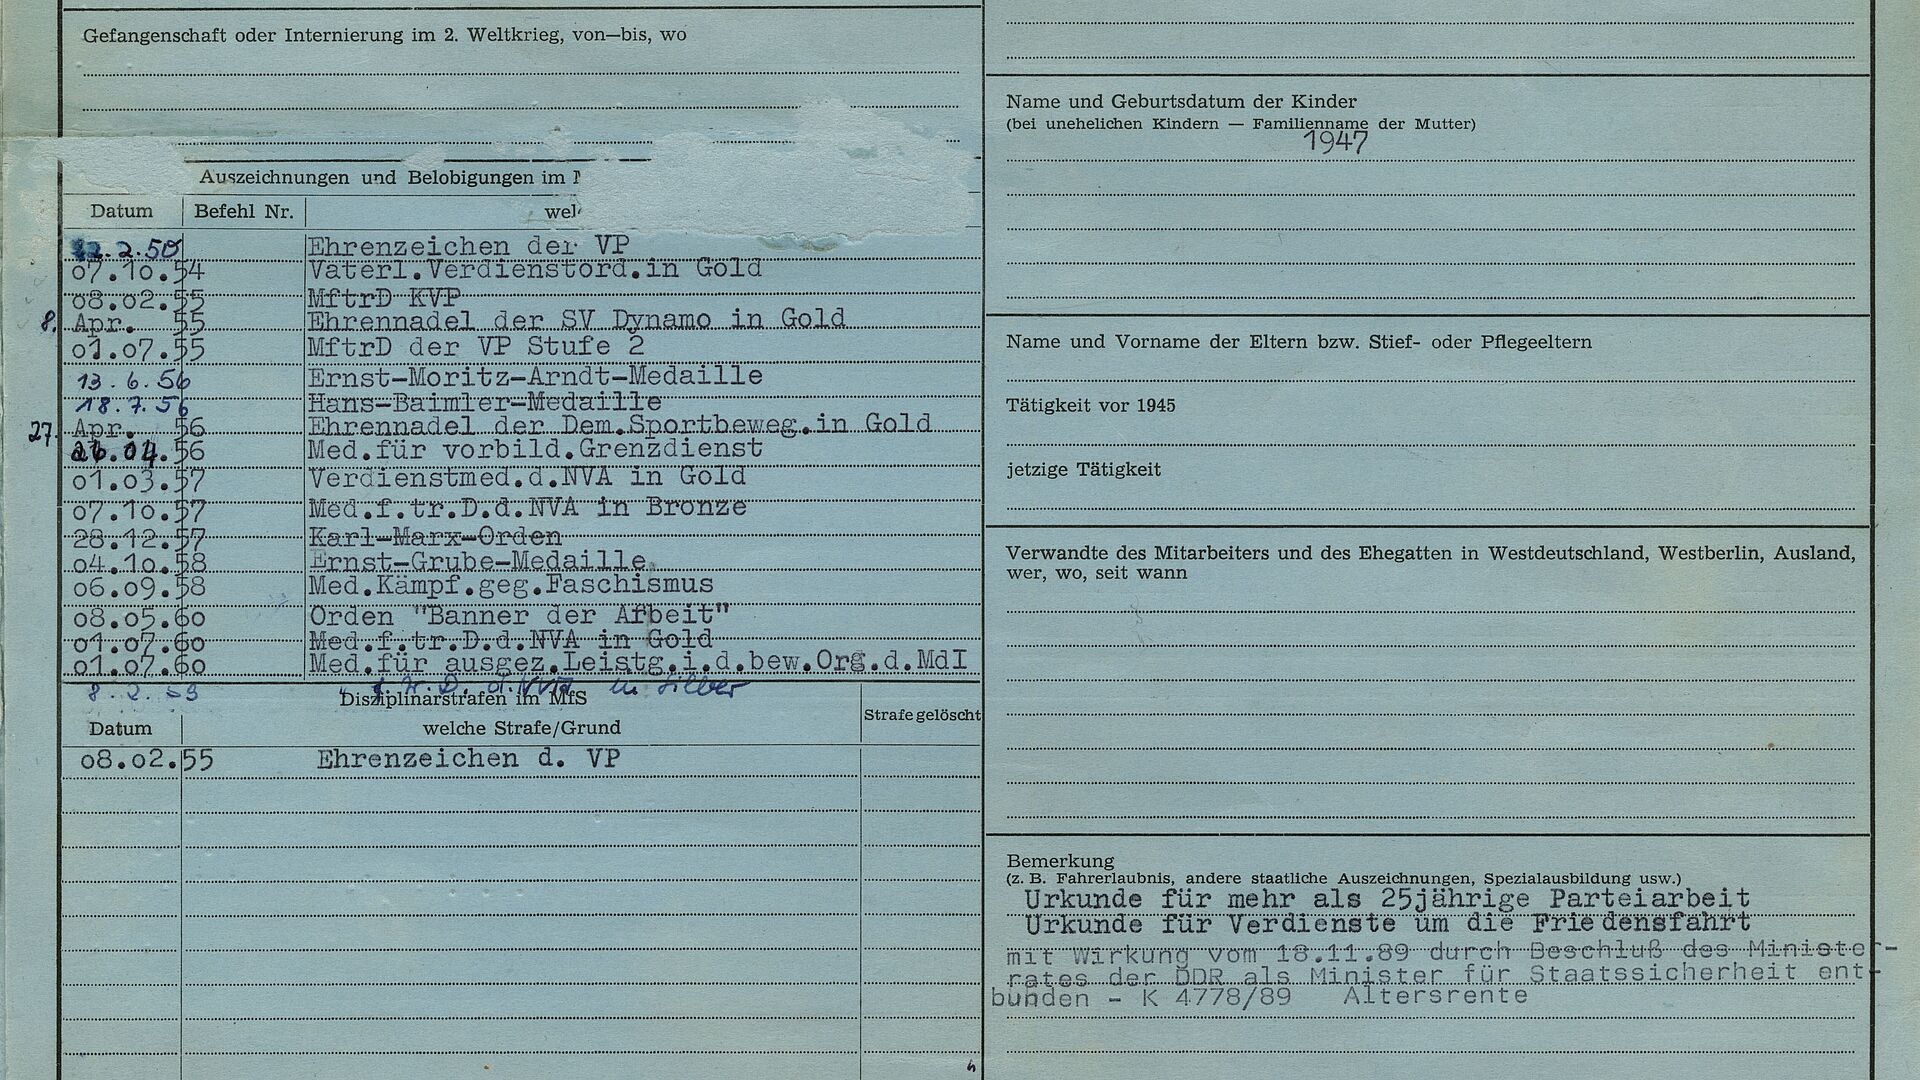 Gefangenschaft oder Internierung im 2. Weltkrieg, von—bis, wo
Auszeichnungen und Belobigungen im
Datum Befehl Nr.
2.50 Ehrenzeichen der VP
07.10.54 Vaterl.Verdienstord.in Gold
08.02.55 MftrD KVP
8. Apr. 55 Ehrennadel der SV Dynamo in Gold
01.07.55 MftrD der VP Stufe 2
13.6.56 Ernst-Moritz-Arndt-Medaille
18.7.56 Hans-Baimler-Medaille
27. Apr. 56 Ehrennadel der Dem.Sportbeweg.in Gold
04.56 Med.für vorbild.Grenzdienst
01.03.57 Verdienstmed.d.NVA in Gold
07.10.57 Med.f.tr.D.d.NVA in Bronze
28.12.57 Karl-Marx-Orden
04.10.58 Ernst-Grube-Medaille
06.09.58 Med.Kämpf.geg.Faschismus
08.05.60 Orden "Banner der Afbeit"
01.07.60 Med.f.tr.D.d.NVA in Gold
01.07.60 Med.für ausgez.Leistg.i.d.bew.Org.d.MdI
f. tr. D. d. NVA in Silber
Disziplinarstrafen im MfS
Datum welche Strafe/Grund Strafe gelöscht
08.02.55 Ehrenzeichen d. VP
Name und Geburtsdatum der Kinder
(bei unehelichen Kindern — Familienname der Mutter)
1947
Name und Vorname der Eltern bzw. Stief- oder Pflegeeltern
Tätigkeit vor 1945
jetzige Tätigkeit
Verwandte des Mitarbeiters und des Ehegatten in Westdeutschland, Westberlin, Ausland,
wer, wo, seit wann
Bemerkung
(z. B. Fahrerlaubnis, andere staatliche Auszeichnungen, Spezialausbildung usw.)
Urkunde für mehr als 25jährige Parteiarbeit
Urkunde für Verdienste um die Friedensfahrt
mit Wirkung vom 18.11.89 durch Beschluß des Minister-
rates der DDR als Minister für Staatssicherheit ent-
bunden - K 4778/89 Altersrente